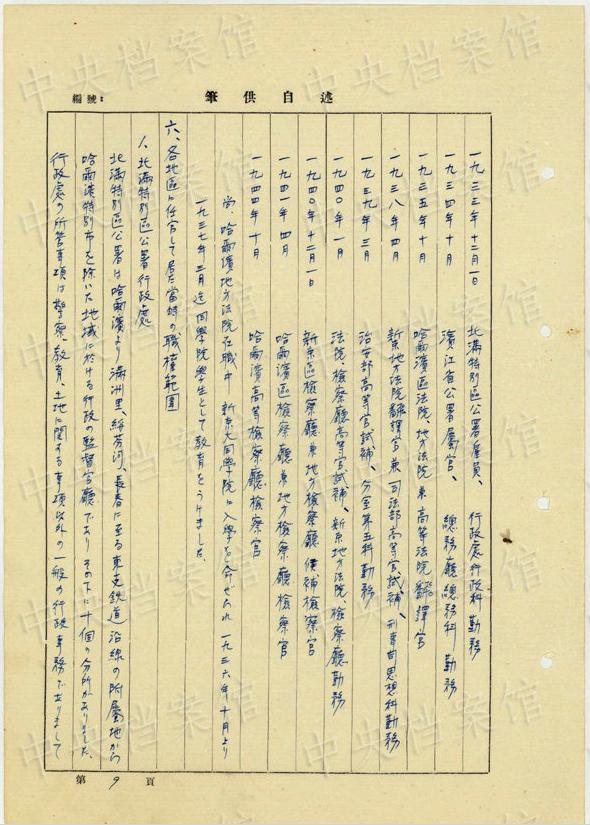 編號:
筆供自述
一九三三年十二月一日 北滿特別區公署雇員、 行政處行政科勤務
一九三四年十月 濱江省公署屬官、 總務廳總務科 勤務
一九三五年十月 哈爾濱區法院、地方法院兼高等法院飜譯官
一九三八年四月 新京地方法院飜譯官兼司法部高等官試補、刑事司思想科勤務
一九三九年三月 治安部高等官試補、分室第五科勤務
一九四〇年一月 法院、檢察廳高等官試補、新京地方法院、檢察廳勤務
一九四〇年十二月一日 新京區檢察廳兼地方檢察廳候補檢察官
一九四一年四月 哈爾濱區檢察廳兼地方檢察廳檢察官
一九四四年十月 哈爾濱高等檢察廳檢察官
尚、哈爾濱地方法院在職中 新京大同學院に入學を命ぜられ一九三六年十月より
一九三七年三月迄同學院學生として教育をうけました、
六、各地區に任官して居た當時の職權範圍
1、北滿特別區公署行政處
北滿特別區公署は哈爾濱より滿洲里、綏芬河、長春に至る東支鉄道沿線の附屬地から
哈爾濱特別市を除いた地域に於ける行政の監督官廳であり その下に十個の分所がありました、
行政處の所管事項は警察、教育、土地に関する事項以外の一般の行政事務でありまして
第 9 頁
中央档案馆